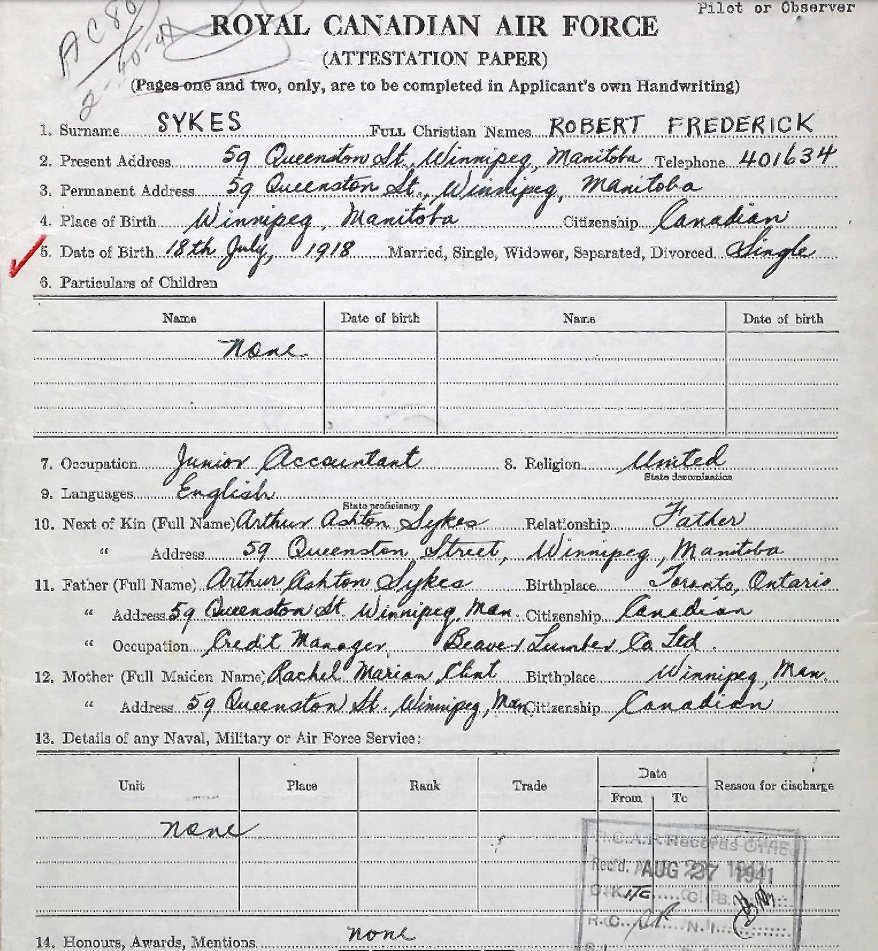 Pilot or Observer
ROYAL CANADIAN AIR FORCE
(ATTESTATION PAPER)
(Pages one and two, only, are to be completed in Applicant's own Handwriting)
1. Surname SYKES FULL Christian Names ROBERT FREDERICK
2. Present Address 59 Queenston St., Winnipeg, Manitoba Telephone 401634
3. Permanent Address 59 Queenston St., Winnipeg, Manitoba
4. Place of Birth Winnipeg, Manitoba Citizenship Canadian
5. Date of Birth 18th July, 1918 Married, Single, Widower, Separated, Divorced Single
6. Particulars of Children
Name Date of birth Name Date of birth
None
7. Occupation Junior Accountant 8. Religion United
State denomination
9. Languages English
State proficiency
10. Next of Kin (Full Name) Arthur Ashton Sykes Relationship Father
" Address 59 Queenston Street, Winnipeg, Manitoba
11. Father (Full Name) Arthur Ashton Sykes Birthplace Toronto, Ontario
" Address 59 Queenston St Winnipeg, Man. Citizenship Canadian
" Occupation Credit Manager, Beaver Lumber Co. Ltd.
12. Mother (Full Maiden Name) Rachel Marion Clint Birthplace Winnipeg, Man.
" Address 59 Queenston St. Winnipeg, Man Citizenship Canadian
13. Details of any Naval, Military or Air Force Service:
Unit Place Rank Trade Date Reason for discharge
From To
None
R.C.A.F. Records Office
Rec'd. AUG 27 1941
14. Honours, Awards, Mentions none